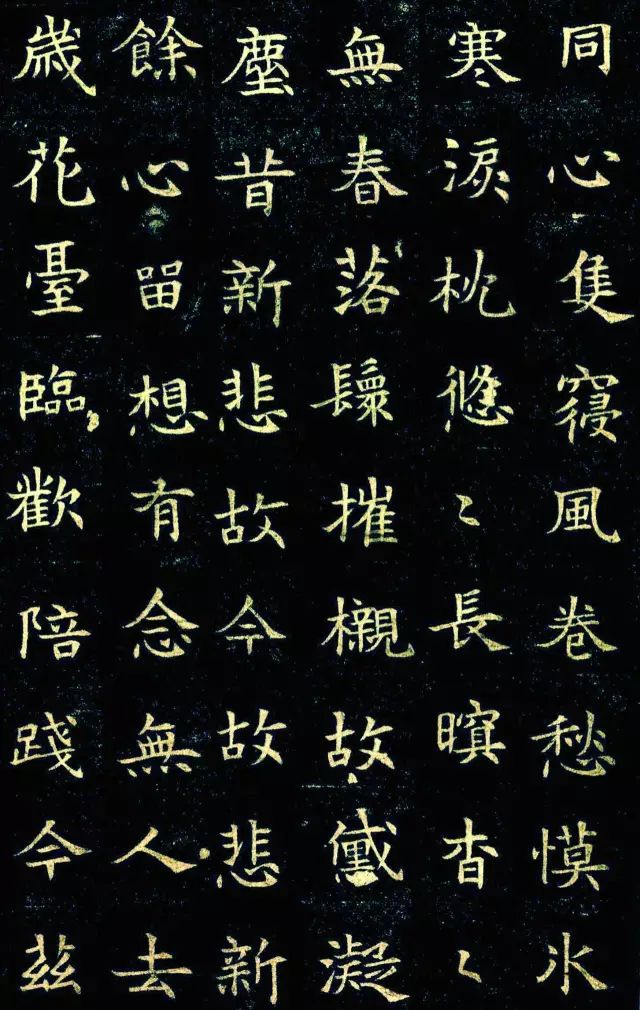 同心隻寑風卷愁慔氷
寒淚枕悠〻長瞑杳〻
無春落鬟摧櫬故黛凝
塵昔新悲故今故悲新
餘心留想有念無人去
歲花臺臨歡陪踐今茲